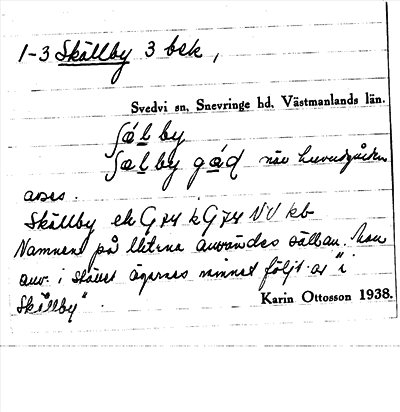 1-3 Skällby 3 bek,
Svedvi sn, Snevringe hd, Västmanlands län.
ʃálby
ʃælby gád när huvudgården
avses.
Skällby ek G74 k G74 NV kb
Namnen på littera användes sällan. Man
anv. i stället ägarnas namn följt av "i
Skällby".
Karin Ottosson 1938.